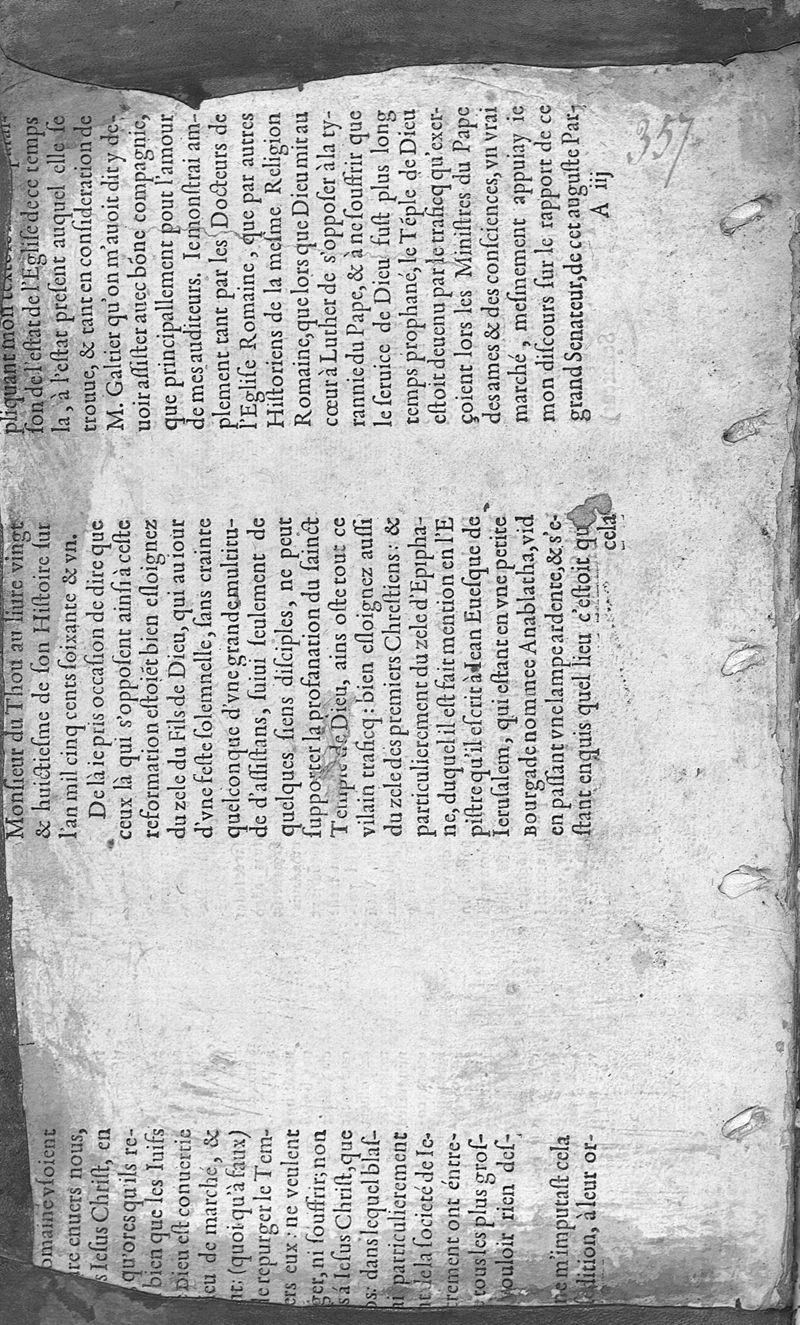 omaine vſoient
re enuers nous,
s Ieſus Chriſt, en
qu'ores qu'ils re-
bien que les Iuifs
Dieu eſt conuertie
eu de marché, &
nt: (quoi qu'à faux)
e repurger le Tem-
ers eux: ne veulent
ger, ni ſouffrir; non
s à Ieſus Chriſt, que
os: dans lequel blaſ-
ni particulierement
nt de la ſocieté de Ie-
rement ont entre-
tous les plus groſ-
vouloir rien deſ-
ne m'imputaſt cela
ſedition, à leur or-
Monſieur du Thou au liure vingt
& huictieſme de ſon Hiſtoire ſur
l'an mil cinq cents ſoixante & vn.
De là ie pris occaſion de dire que
ceux là qui s'oppoſent ainſi a ceſte
reformation eſtoiẽt bien eſloignez
du zele du Fils de Dieu, qui au iour
d'vne feſte ſolemnelle, ſans crainte
quelconque d'vne grande multitu-
de d'aſſiſtans, ſuiui ſeulement de
quelques ſiens diſciples, ne peut
ſupporter la profanation du ſainct
Temple de Dieu, ains oſte tout ce
vilain traficq: bien eſloignez auſſi
du zele des premiers Chreſtiens: &
particulierement du zele d'Epipha-
ne, duquel il eſt fait mention en l'E
piſtre qu'il eſcrit à Iean Eueſque de
Ieruſalem, qui eſtant en vne petite
Bourgade nommee Anablatha, vid
en paſſant vne lampe ardente, & s'e-
ſtant enquis quel lieu c'eſtoit qu
cela
pliquant mon
ſon de l'eſtat de l'Egliſe de ce temps
la, à l'eſtat preſent auquel elle ſe
trouue, & tant en conſideration de
M. Galtier qu'on m'auoit dit y de-
uoir aſſiſter auec bõne compagnie,
que principallement pour l'amour
de mes auditeurs. Ie monſtrai am-
plement tant par les Docteurs de
l'Egliſe Romaine, que par autres
Hiſtoriens de la meſme Religion
Romaine, que lors que Dieu mit au
cœur à Luther de s'oppoſer à la ty-
rannie du Pape, & à ne ſouffrir que
le ſeruice de Dieu fuſt plus long
temps prophané, le Tẽple de Dieu
eſtoit deuenu par le traficq qu'exer-
çoient lors les Miniſtres du Pape
des ames & des conſciences, vn vrai
marché, meſmement appuiay ie
mon diſcours ſur le rapport de ce
grand Senateur, de cet auguſte Par-
A iij
357